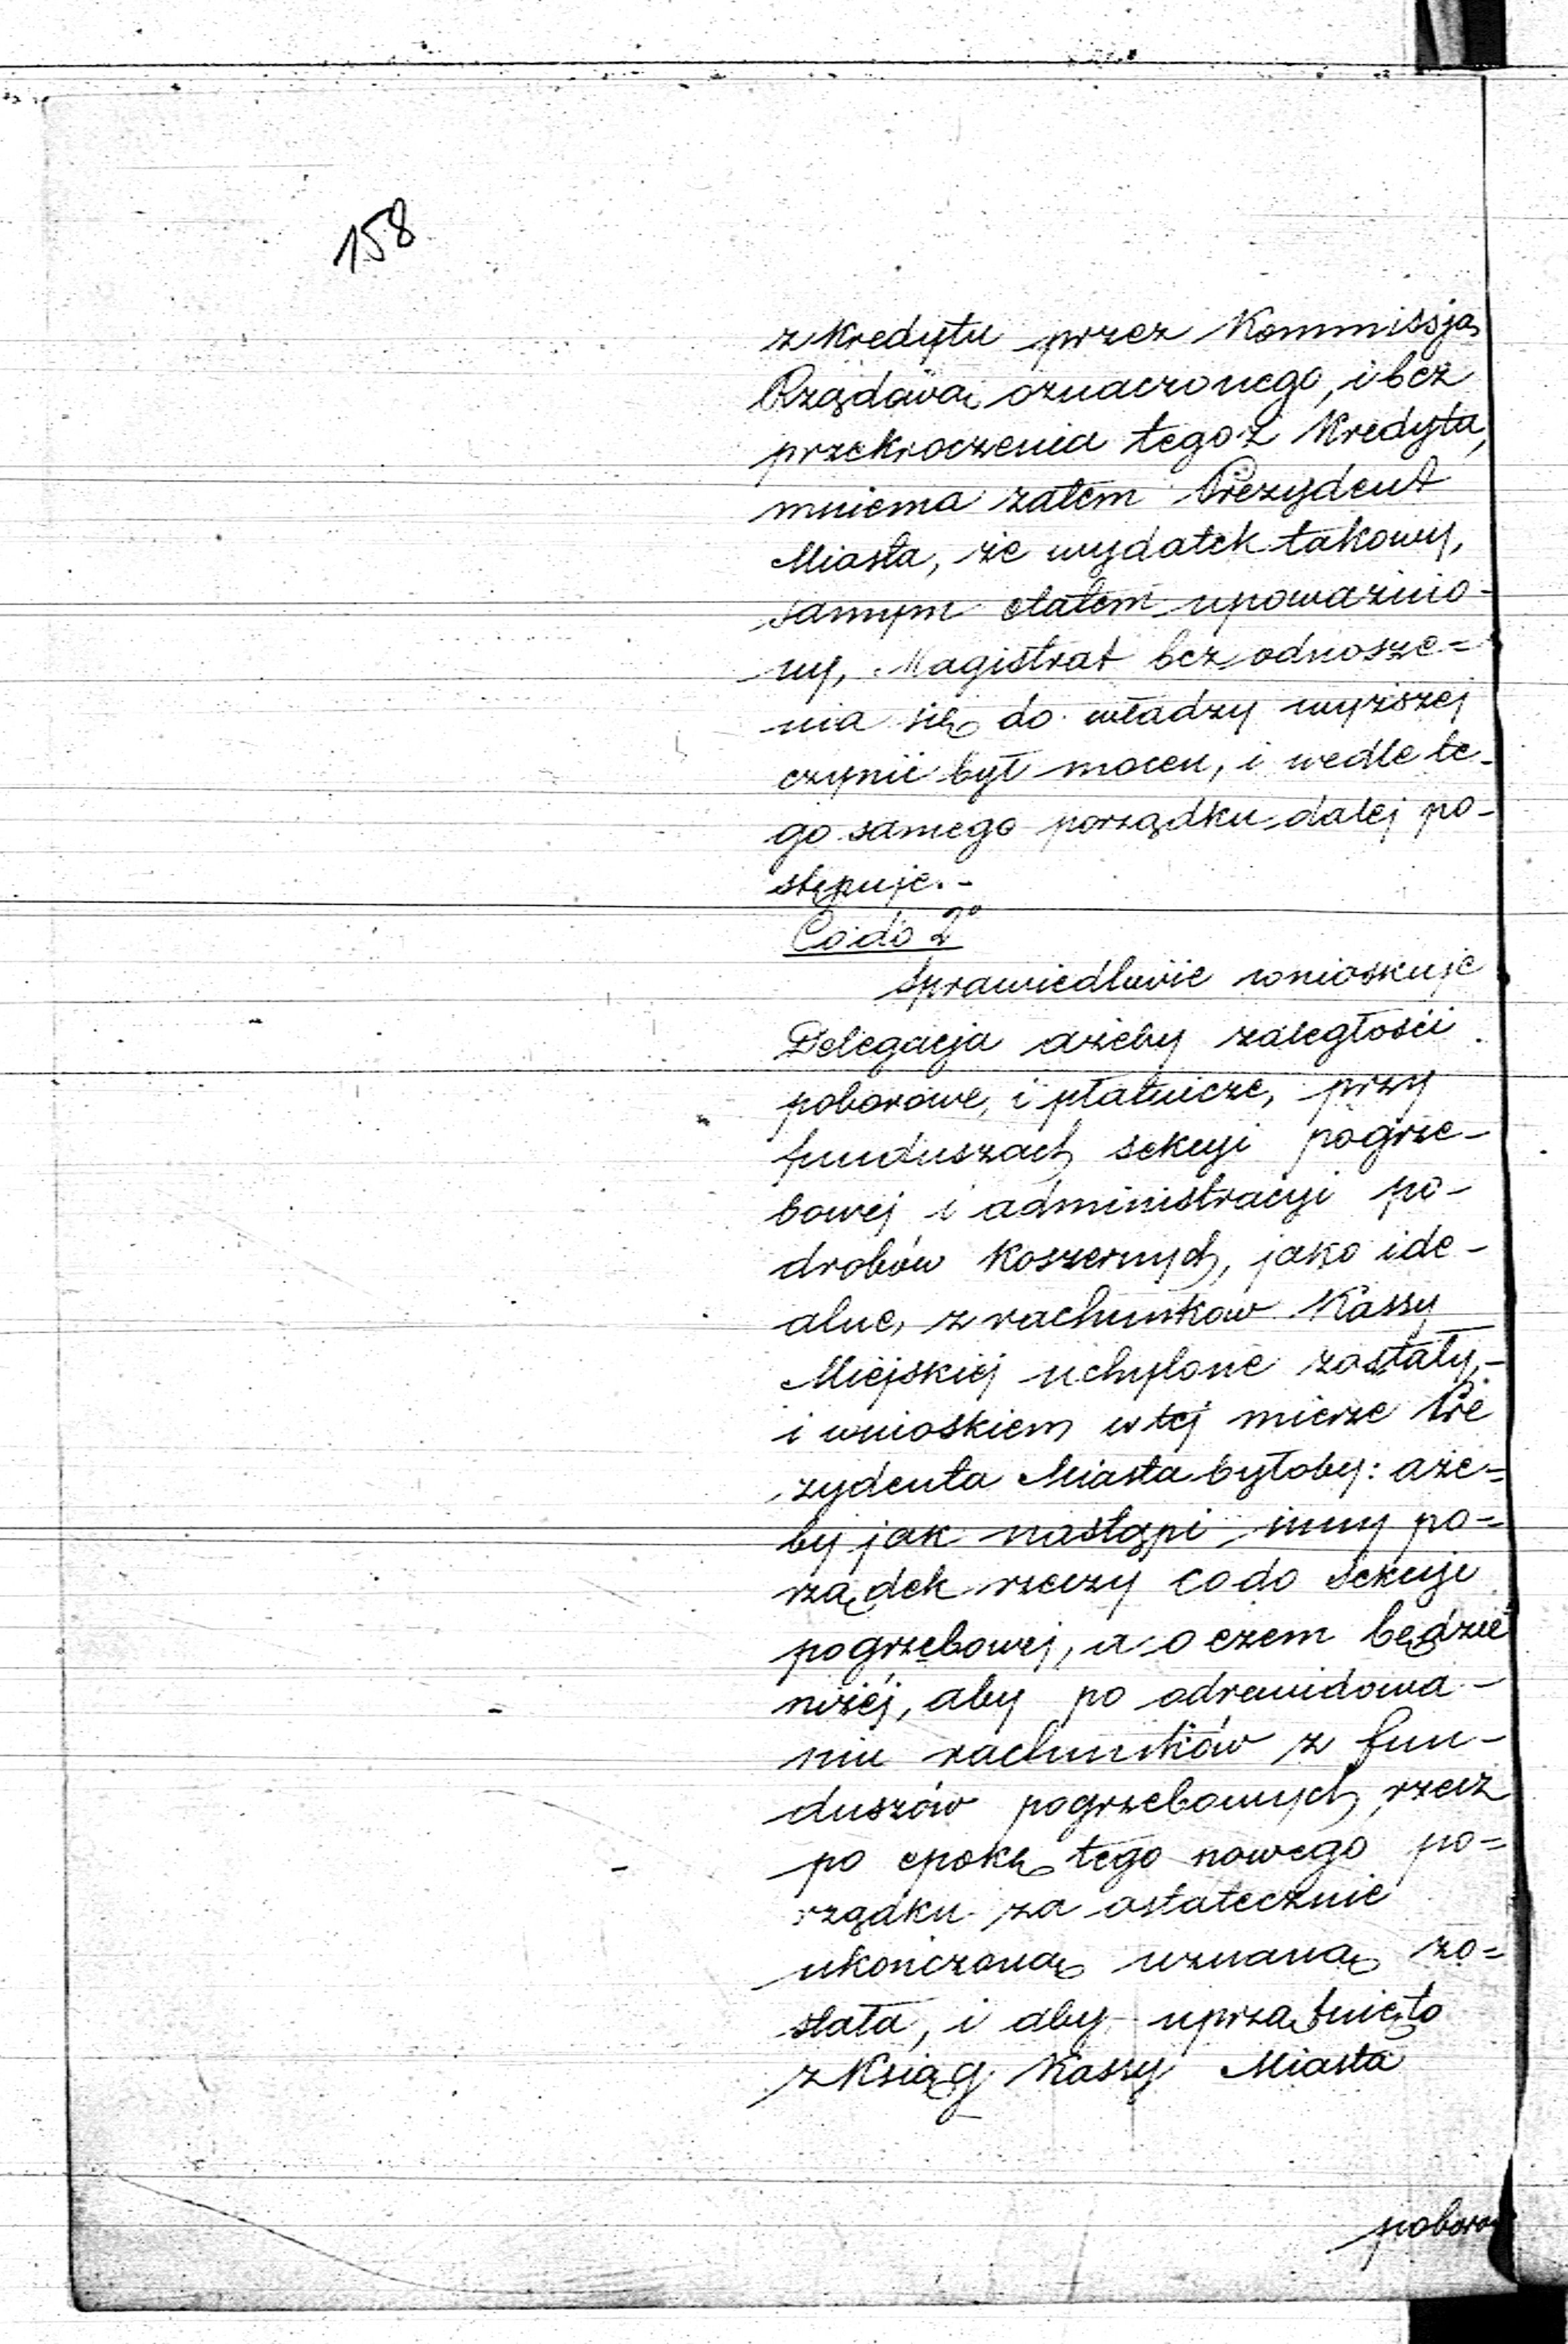 158
z kredytu przez Kommissją
Rządową oznaczonego, i bez
przekroczenia tegoż Kredytu,
mniema zatem Prezydent
Miasta, że wydatek takowy,
samym etatem upoważnio-
ny, Magistrat bez odnosze=
nia się do władzy wyższej
czynić był mocen, i wedle te-
go samego porządku dalej po-
stępuje.-
Co do 2°
Sprawiedliwie wnioskuje
Delegacja ażeby zaległości
poborowe, i płatnicze, przy
funduszach sekcyi pogrze-
bowej i administracyi po-
drobów Koszernych, jako ide-
alne, z rachunkow Kassy
Miejskiej uchylone zostały,-
i wnioskiem w tej mierze Pre
zydenta Miasta byłoby: aże=
by jak nastąpi inny po=
rządek rzeczy co do Sekcyi
pogrzebowej, a o czem będzie
niżej, aby po odrewidowa-
niu rachunków z fun-
duszów pogrzebowych, rzecz
po epokę tego nowego po=
rządku za ostatecznie
ukończoną uznaną zo=
stała, i aby uprzątnięto
z Ksiąg Kassy Miasta
poboro